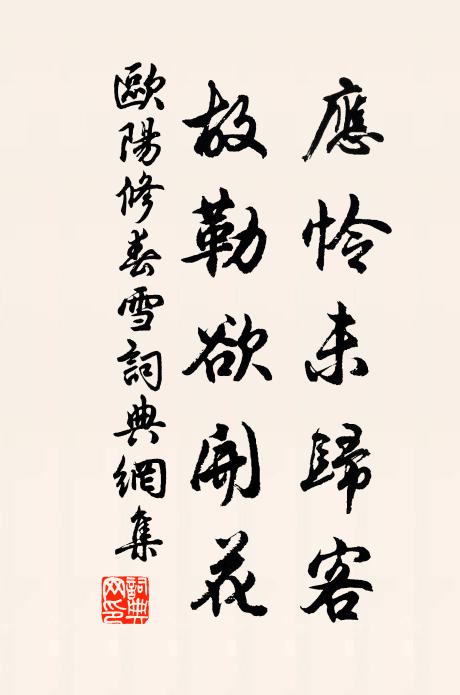 應怜未歸客
故勒欲開花
歐陽修春雪詞典網集
詞典網印